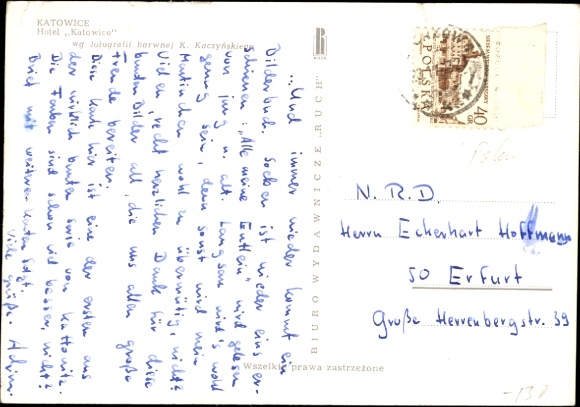 KATOWICE
Hotel „Katowice”
wg fotografii barwnej K. Kaczyńskiego
...Und immer wieder kommt ein
Bilderbuch. Soeben ist wieder eins er-
schienen: „Alle meine Entlein” wird gelesen
von jung u. alt. Langsam wird's wohl
genug sein, denn sonst wird mein
Martinchen wohl zu übermütig, nicht?
Vielen, recht herzlichen Dank für diese
bunten Bilder all, die uns allen große
Freude bereiten.
Diese Karte hier ist eine der ersten aus
der wirklich bunten Serie von Kattowitz.
Die Farben sind schon viel besser, nicht?
Brief mit weiteren Karten folgt.
Viele Grüße.
BIURO WYDAWNICZE „RUCH”
RUCH
POLSKA
40
GR
N. R. D.
Herrn Eckerhart Hoffmann
50 Erfurt
Große Herrenbergstr. 39
Wszelkie prawa zastrzeżone